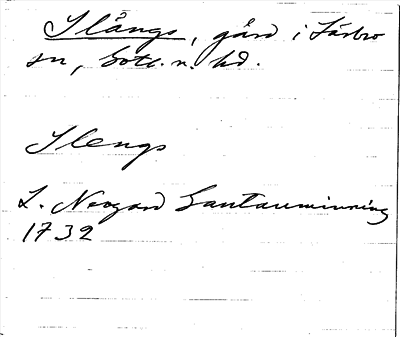 Slångs, gård i Lärbro
sn, Gotl. n. hd.
Slengs
L. Neogard Gautauminning
1732